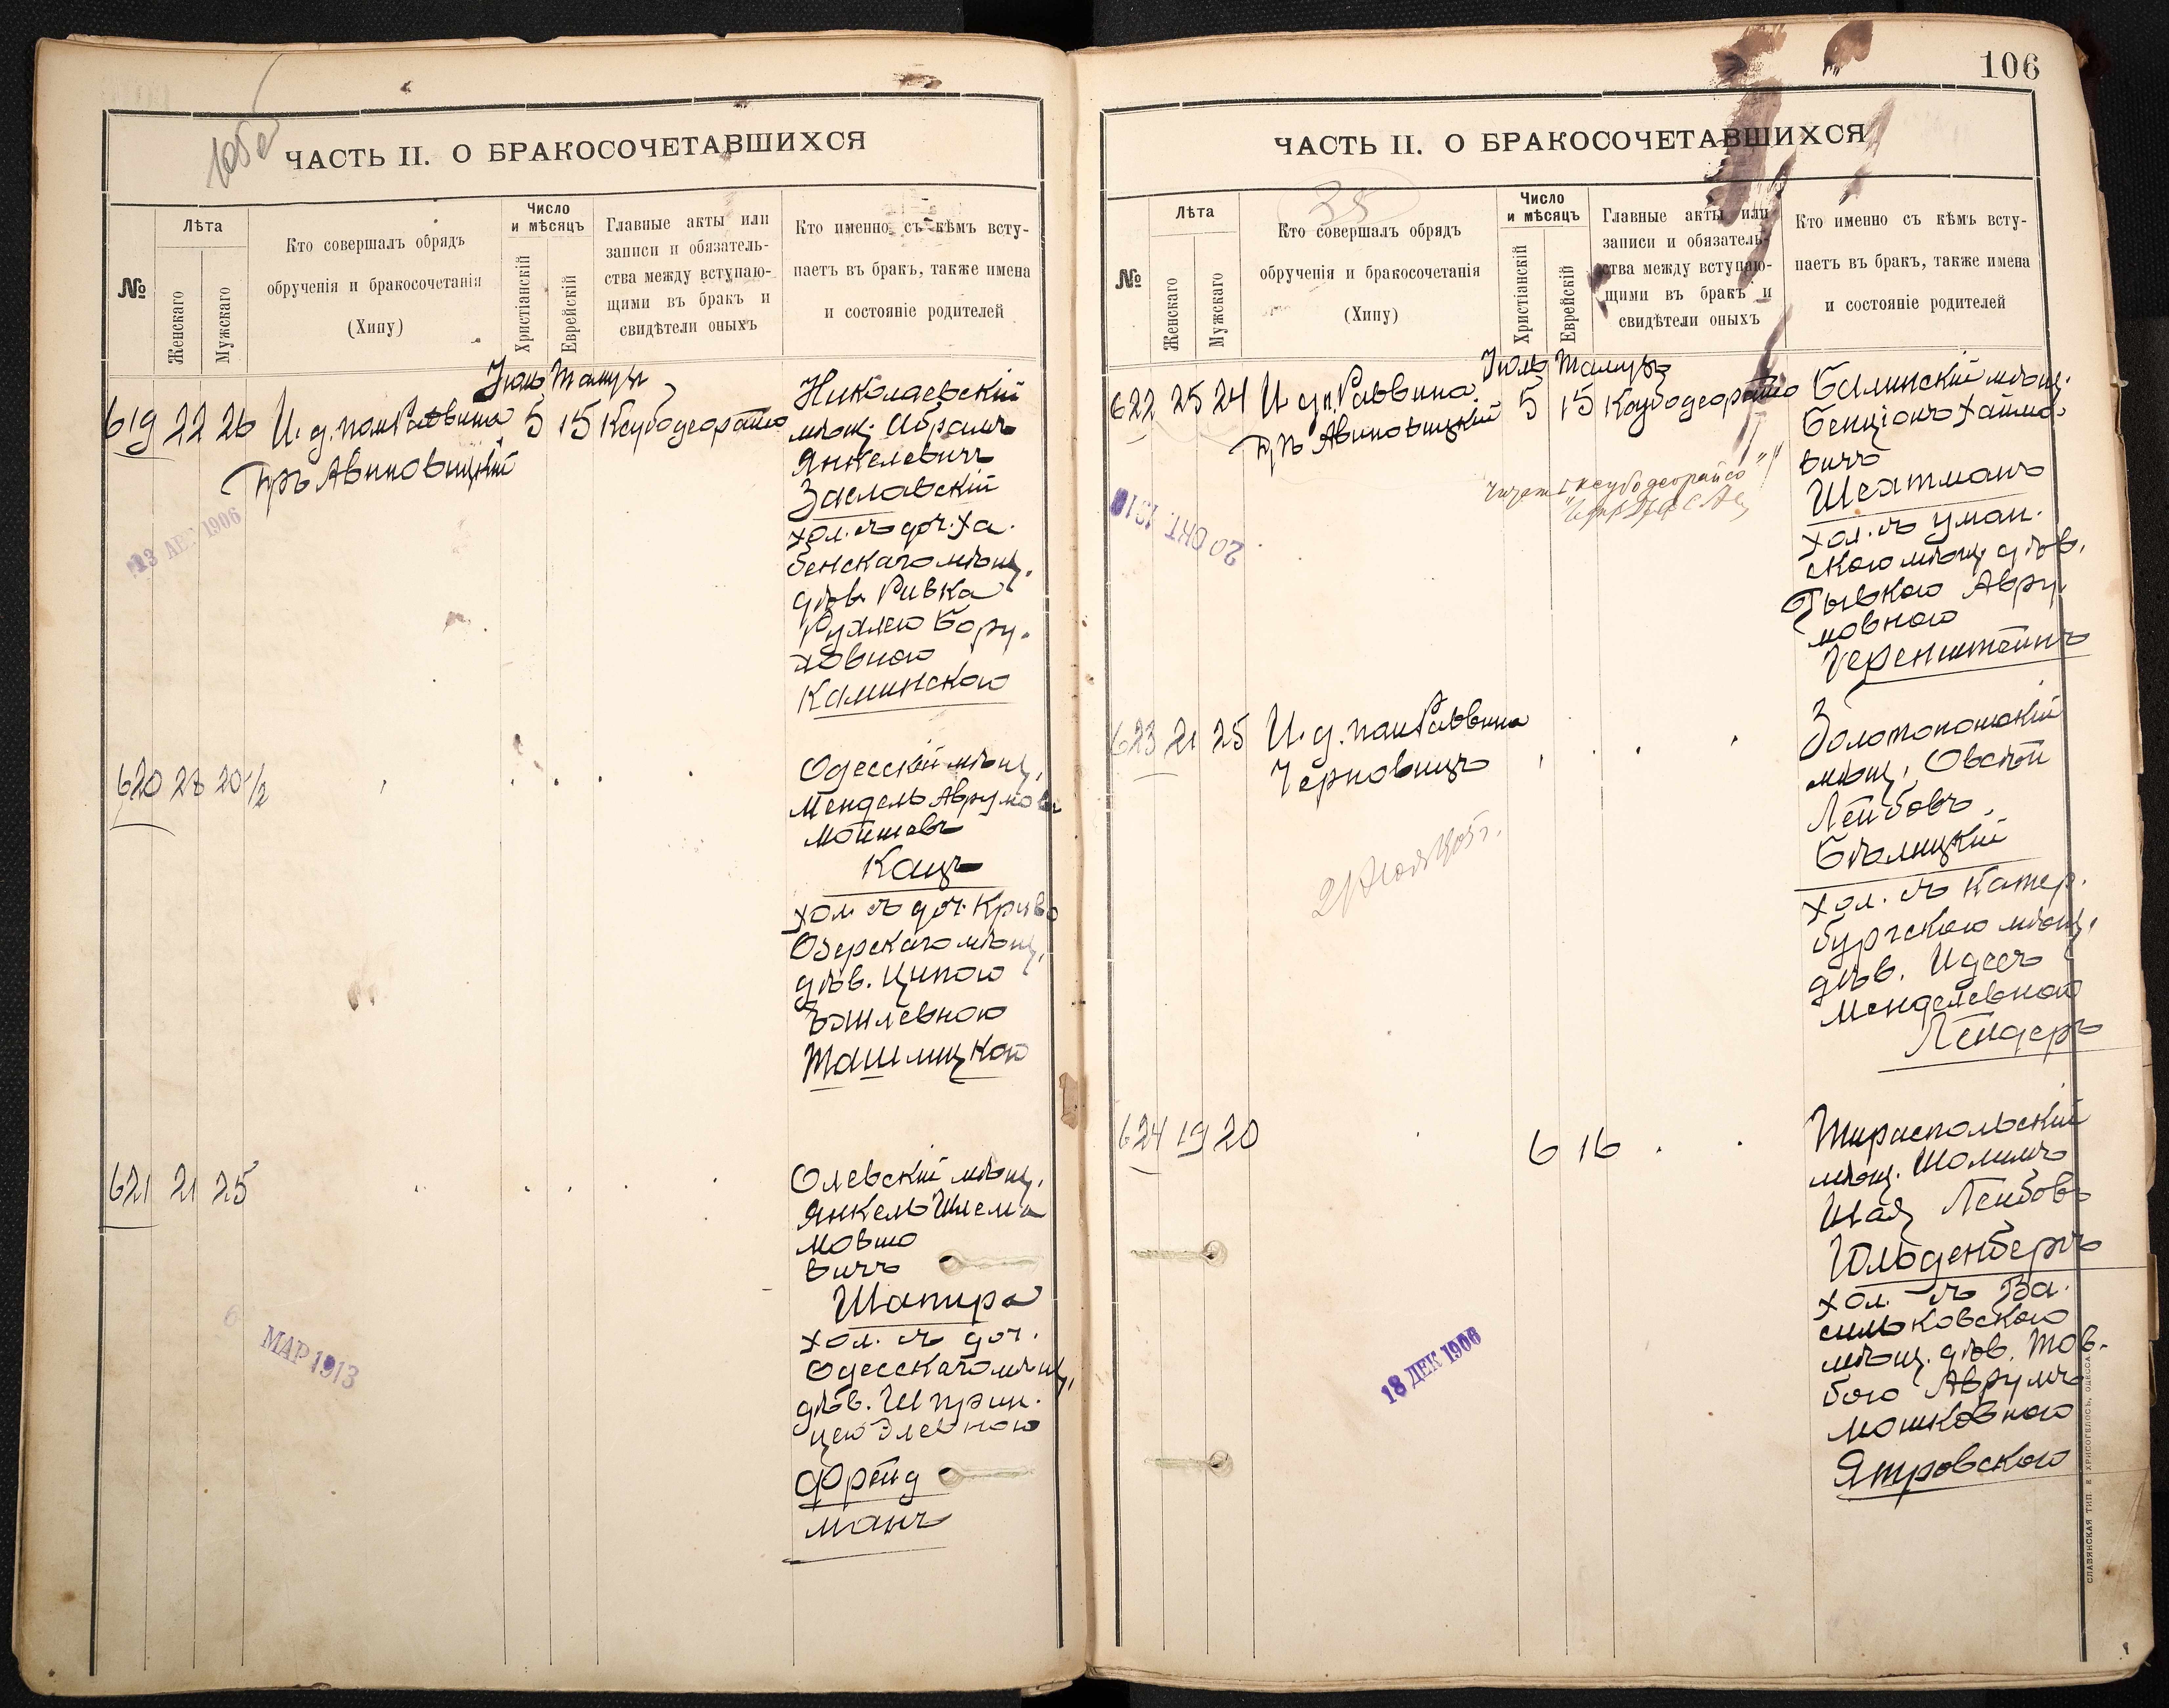 105об
ЧАСТЬ II. О БРАКОСОЧЕТАВШИХСЯ
№
Лѣта
Женскаго
Мужскаго
Кто совершалъ обрядъ
обрученія и бракосочетанія
(Хипу)
Число
и мѣсяцъ
Христіанскій
Еврейскій
Главные акты или
записи и обязатель-
ства между вступаю-
щими въ бракъ и
свидѣтели оныхъ
Кто именно съ кѣмъ всту-
паетъ въ бракъ, также имена
и состояніе родителей
Іюль Тамузъ
619 22 26 И. д. пом Раввина 5 15 Ксубодеорайсо
Гръ Авиновицкій
Николаевскій
мѣщ. Абрамъ
Янкелевичъ
Заславскій
хол. съ доч. Ха.
бенскаго мѣщ.
дѣв. Ривка
Рухлею Бору.
ховною
Каминскою
13 1906
620 28 20 1/2
Одесскій мѣщ.
Мендель Аврумовъ
Мойшевъ
Кацъ
хол. съ доч. Криво
Озерскаго мѣщ.
дѣв. Ципою
Ташлицкою
621 21 25
Олевскій мѣщ.
Янкель Шлема
Мовшо
вичъ
Шапира
хол. съ доч.
Одесскаго мѣщ.
дѣв. Шприн.
цею Элевною
Фрейд
манъ
6 МАР 1913
106
ЧАСТЬ II. О БРАКОСОЧЕТАВШИХСЯ
№
Лѣта
Женскаго
Мужскаго
38
Кто совершалъ обрядъ
обрученія и бракосочетанія
(Хипу)
Число
и мѣсяцъ
Христіанскій
Еврейскій
Главные акты или
записи и обязатель-
ства между вступаю-
щими въ бракъ и
свидѣтели оныхъ
Кто именно съ кѣмъ всту-
паетъ въ бракъ, также имена
и состояніе родителей
Іюль Тамузъ
622 25 24 И д. п. Раввина 5 15 Ксубодеорайсо
Гръ Авиновицкій
Балинскій мѣщ.
Бенціонъ Хаймо.
вичъ
Шехтманъ
хол. съ уман.
скою мѣщ. дѣв.
Авру.
мовною
Геренштейнъ
ксубодеорайсо"
20 ОКТ. 1910
623 21 25 И. д. пом Раввина
Черновицъ
Золотоношскій
мѣщ. Овсѣй
Лейбовъ
Бѣлицкій
хол. съ Катер.
бургскою мѣщ.
дѣв. Идесъ
Менделевною
Лендеръ
624 19 20 6 16
Тираспольскій
мѣщ. Шоломъ
Шая Лейбовъ
Гольденбергъ
хол. съ Ва.
сильковскою
мѣщ. дѣв. Тов.
бою Аврумъ
Мошковною
Ятровскою
18 ДЕК 1906
СЛАВЯНСКАЯ ТИП. Е. ХРИСОГЕЛОСЪ, ОДЕССА.